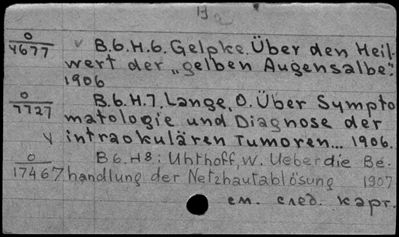 Ba
0
4677
v B.6.H.6. Gelpke. Über den Heil-
wert der „gelben Augensalbe".
1906
0
7727
B.6.H.7. Lange, O. Über Sympto
matologie und Diagnose der
v intraokulären Tumoren... 1906.
0
17467
B6.H8: Uhthoff, W. Ueber die Be-
handlung der Netzhautablösung 1907
см. след. карт.